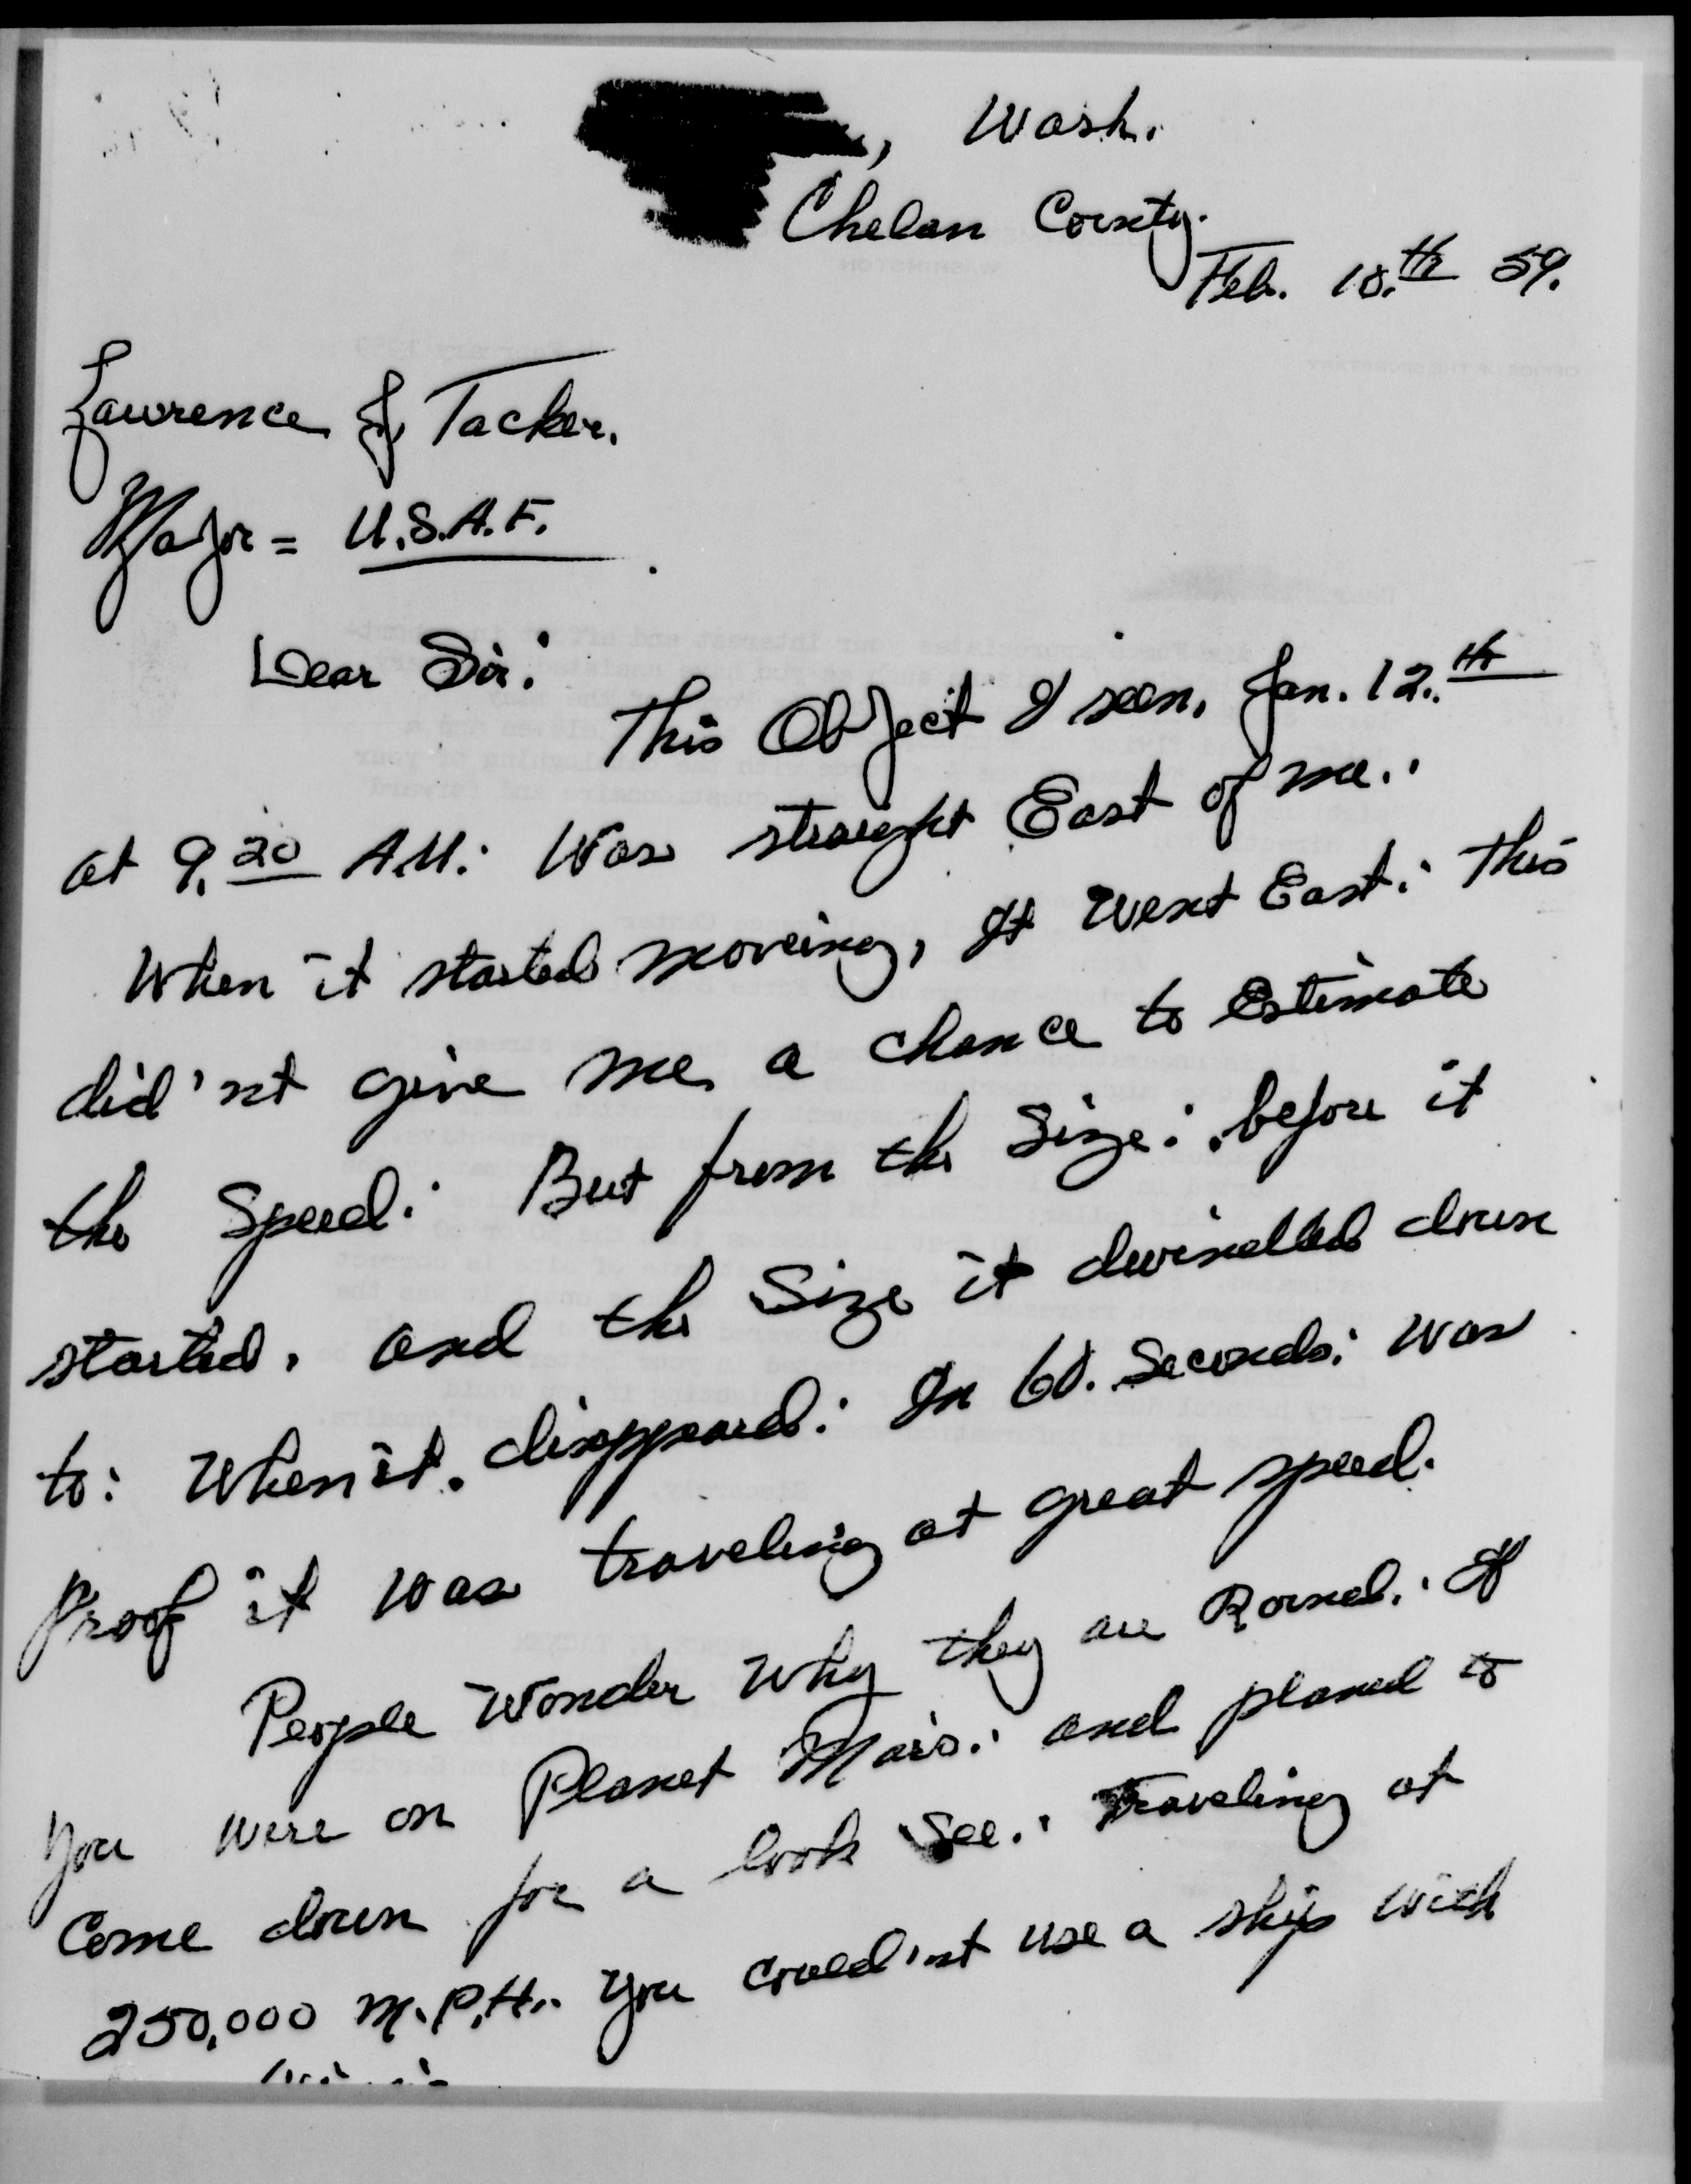 , Wash.
Chelan County.
Feb. 18.th 59.
Lawrence J. Tacker.
Major = U.S.A.F.
Dear Sir:
This Object I seen, Jan. 12.th
at 9.20 A.M: Was straight East of me.:
When it started moveing, It went East: This
did'nt give me a chance to Estimate
the Speed: But from the Size: before it
started, and the Size it dwindled down
to: When it. disappeard: In 60. Seconds: was
Proof it was traveling at great speed.
People Wonder Why they are Round.: If
You were on Planet Mars.: and planed to
Come down for a look See.: Traveling at
250,000 M.P.H.. You could'nt use a ship with